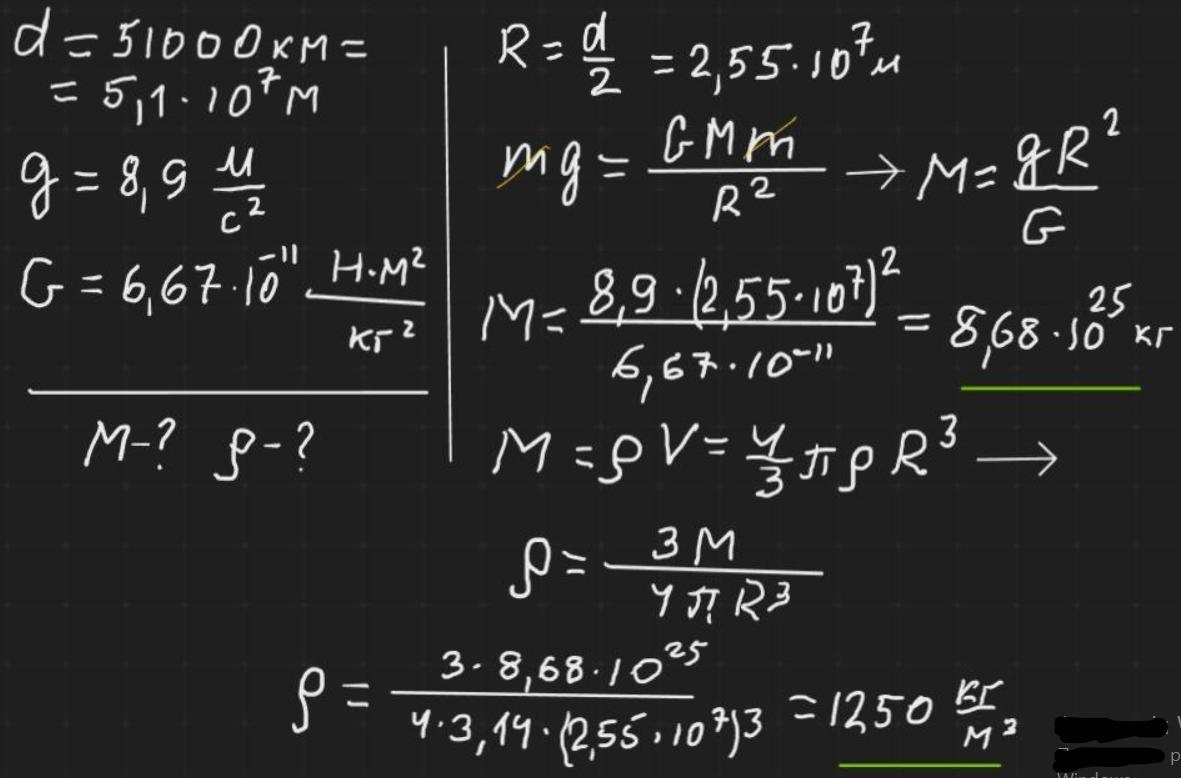 d = 51000 км =
= 5,1 · 10⁷ м
g = 8,9 м/с²
G = 6,67 · 10⁻¹¹ Н·м²/кг²
M - ? ρ - ?
R = d/2 = 2,55 · 10⁷ м
mg = GMm/R² → M = gR²/G
M = 8,9 · (2,55 · 10⁷)²/6,67 · 10⁻¹¹ = 8,68 · 10²⁵ кг
M = ρV = 4/3 πρR³ →
ρ = 3M/4πR³
ρ = 3 · 8,68 · 10²⁵/4 · 3,14 · (2,55 · 10⁷)3 = 1250 кг/м³